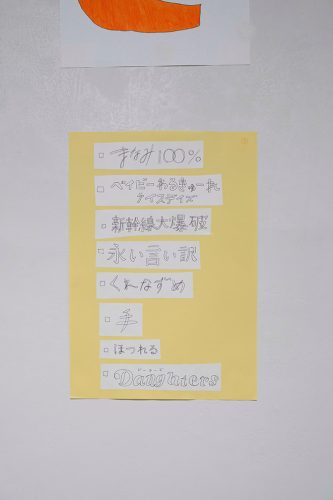 □ まなみ100%
□ ベイビーわるきゅーれ
ナイスデイズ
□ 新幹線大爆破
□ 永い言い訳
□ くれなずめ
□ ほつれる
□ Daughters